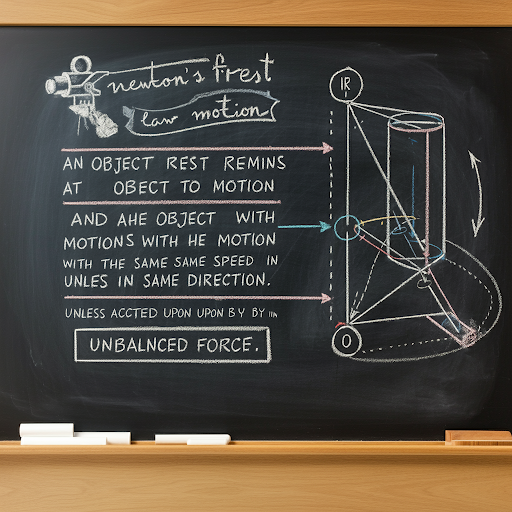 newton's frest
law motion
AN OBJECT REST REMINS
AT OBECT TO MOTION
AND AHE OBJECT WITH
MOTIONS WITH HE MOTION
WITH THE SAME SAME SPEED IN
UNLES IN SAME DIRECTION.
UNLESS ACCTED UPON UPON BY BY
UNBALNCED FORCE.
IR
O